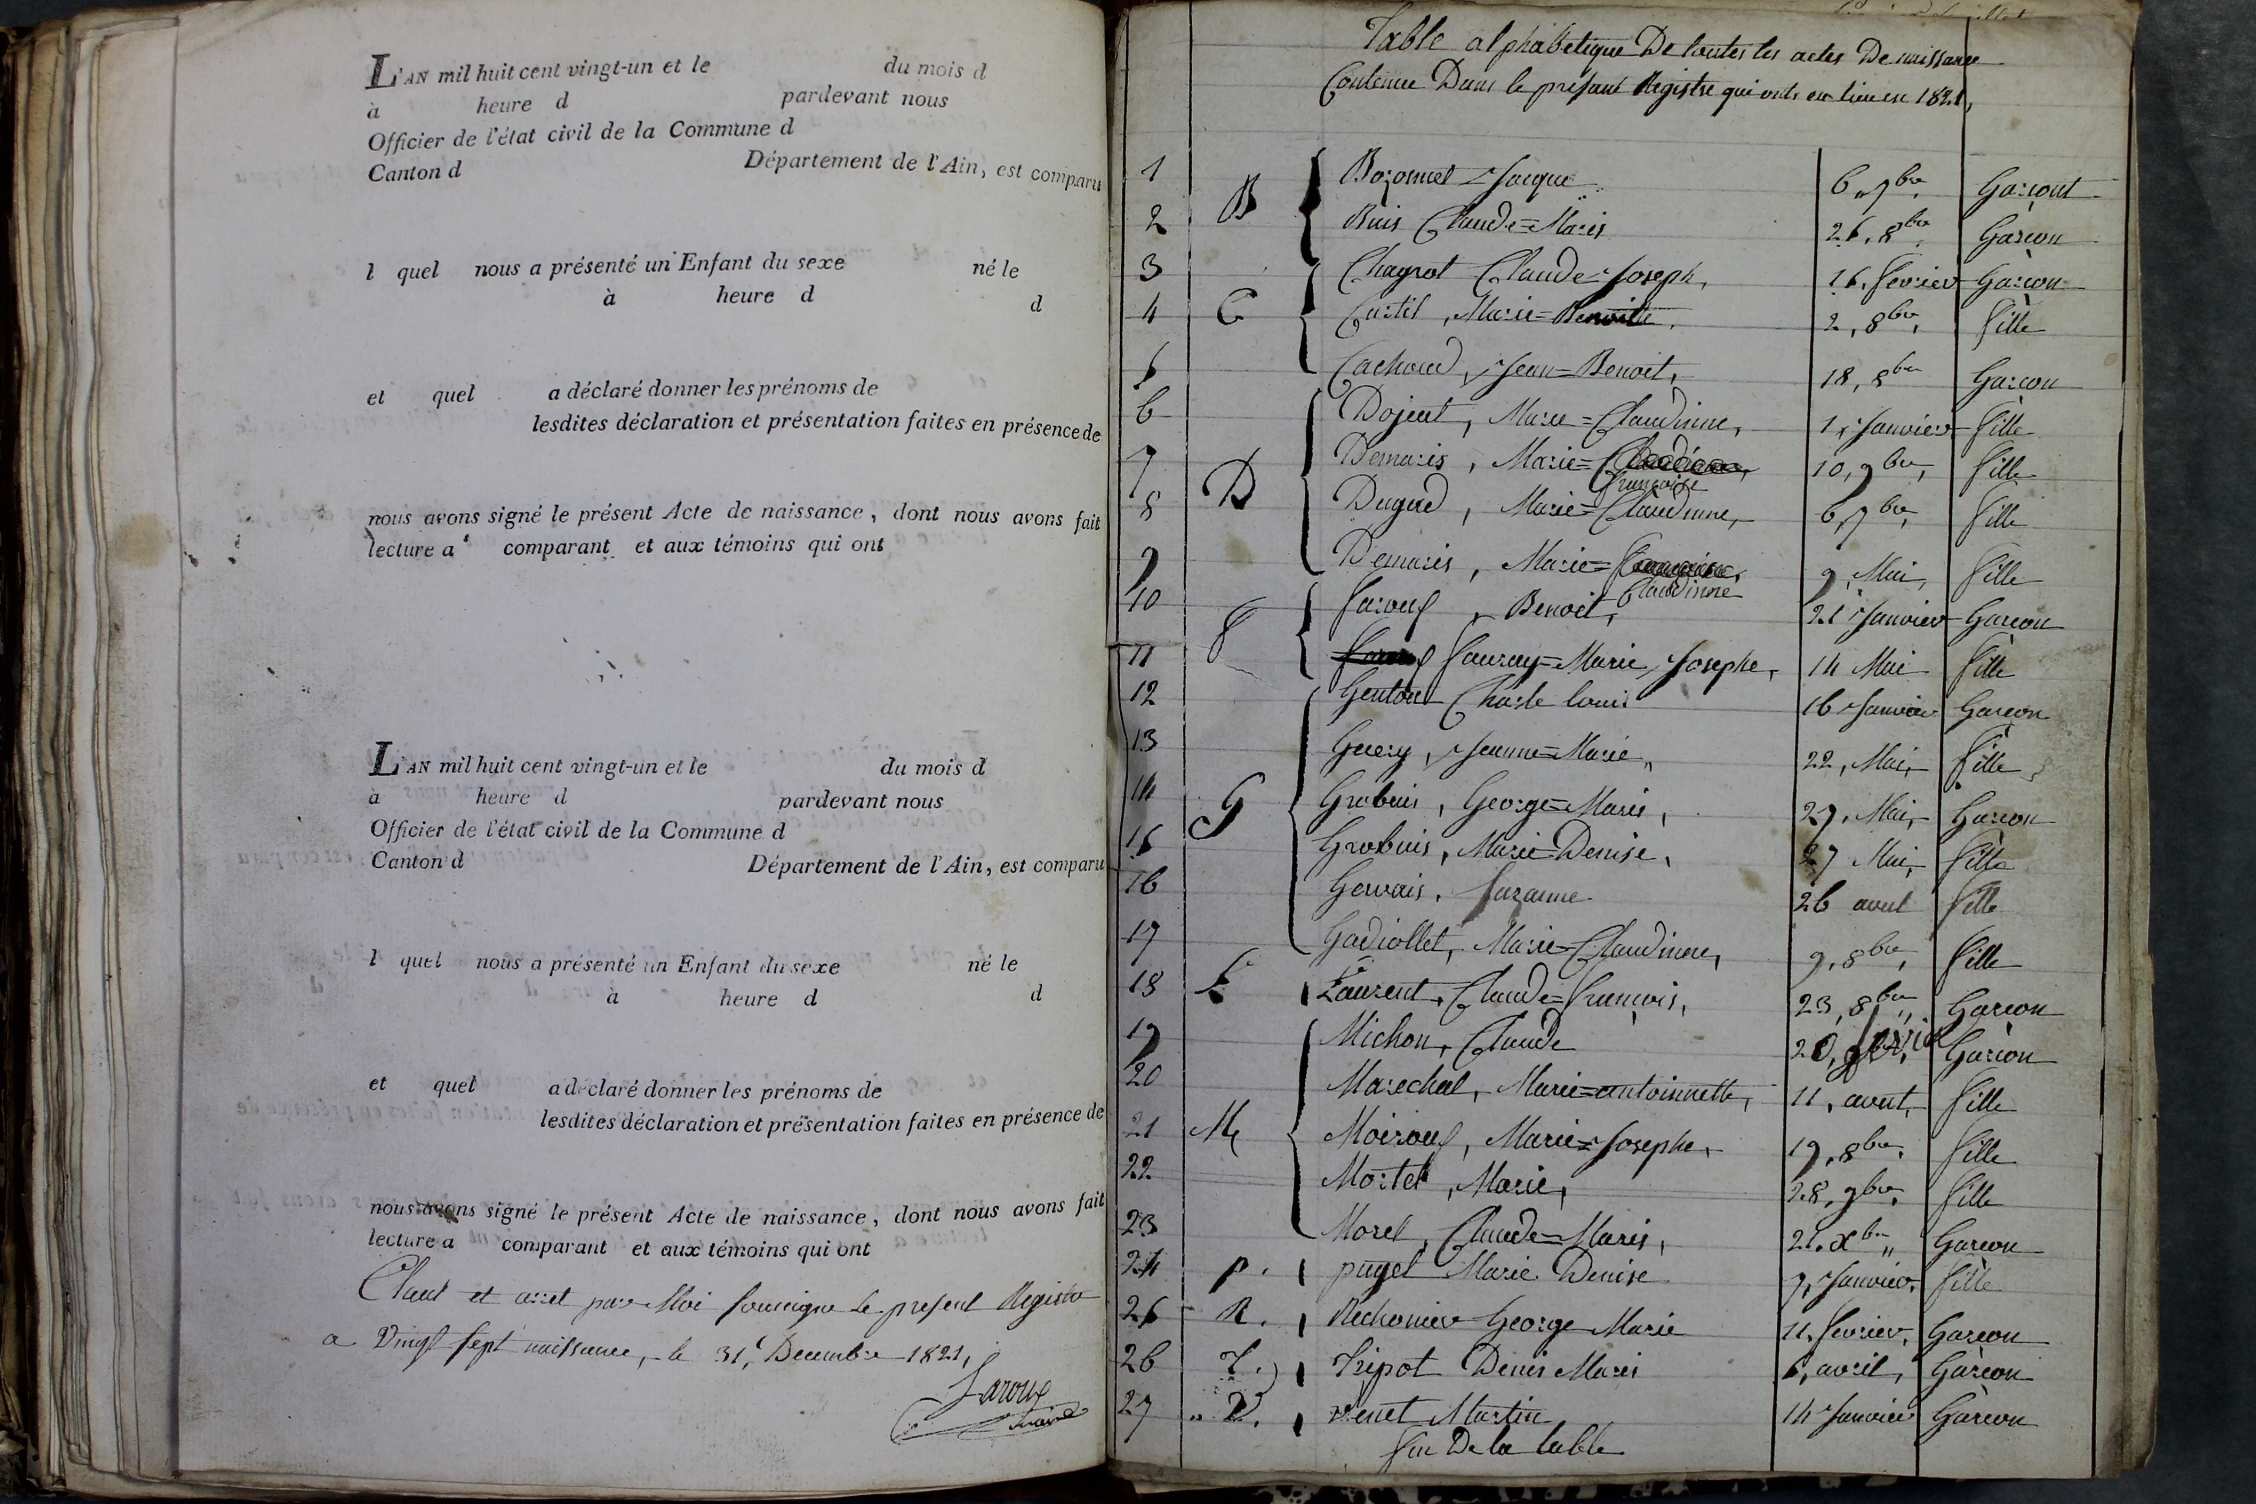 L'AN mil huit cent vingt-un et le du mois d
à heure d pardevant nous
Officier de l'état civil de la Commune d
Canton d Département de l'Ain, est comparu
l quel nous a présenté un Enfant du sexe né le
à heure d d
et quel a déclaré donner les prénoms de
lesdites déclaration et présentation faites en présence de
nous avons signé le présent Acte de naissance, dont nous avons fait
lecture a comparant et aux témoins qui ont
L'AN mil huit cent vingt-un et le du mois d
à heure d pardevant nous
Officier de l'état civil de la Commune d
Canton d Département de l'Ain, est comparu
l quel nous a présenté un Enfant du sexe né le
à heure d d
et quel a déclaré donner les prénoms de
lesdites déclaration et présentation faites en présence de
nous avons signé le présent Acte de naissance, dont nous avons fait
lecture a comparant et aux témoins qui ont
Claut et aret par Moi soucigne le present Registre
a Vingt sept naissance, le 31, Decembre 1821,
Faroux
maire
Table alphabetique De toutes les actes De naissance
Contenue Dans le present Registre qui onts eu lieu en 1821,
1 B Bozonnet Jacque 6, 7bre, Garçont
2 Buis Claude=Maris 26, 8bre, Garçon
3 Chagrot Claude Joseph, 16, fevrier Garçon
4 C Curtil, Marie=Benoite, 2, 8bre, fille
5 Cachoud, Jean=Benoit, 18, 8bre Garçon
6 Dojeut, Marie=Claudinne, 1, Janvier fille
7 Demaris, Marie= Françoise 10, 9bre, fille
8 D Duguet, Marie=Claudinne, 6, 7bre, fille
9 Demaris, Marie= Claudinne 9, Mai, fille
10 Faroux, Benoit, 21 Janvier Garçon
11 F Fauray=Marie Josephe, 14 Mai fille
12 Genton Charle louis 16 Janvier Garçon
13 Guery, Jeanne=Marie, 22, Mai, fille
14 G Grobuis, George=Maris, 27, Mai, Garçon
15 Grobuis, Marie Denise, 27 Mai, fille
16 Gervais, Suzanne 26 aout fille
17 Gadiollet, Marie=Claudinne, 9, 8bre, fille
18 L Laurent, Claude=François, 23, 8bre, Garçon
19 Michon, Claude 20, fevrie Garçon
20 Marechal, Marie=antoinnette, 11, aout, fille
21 M Moiroux, Marie=Josephe, 19, 8bre, fille
22 Mortel, Marie, 28, 9bre, fille
23 Morel, Claude=Maris, 21, Xbre, Garçon
24 p. puget Marie Denise 9, Janvier, fille
25 R. Rechonier George Marie 11, fevrier, Garçon
26 T. Tripot Denis Maris 6, avril, Garçon
27 V. venet Martin 14 Janvier Garçon
fin De la table